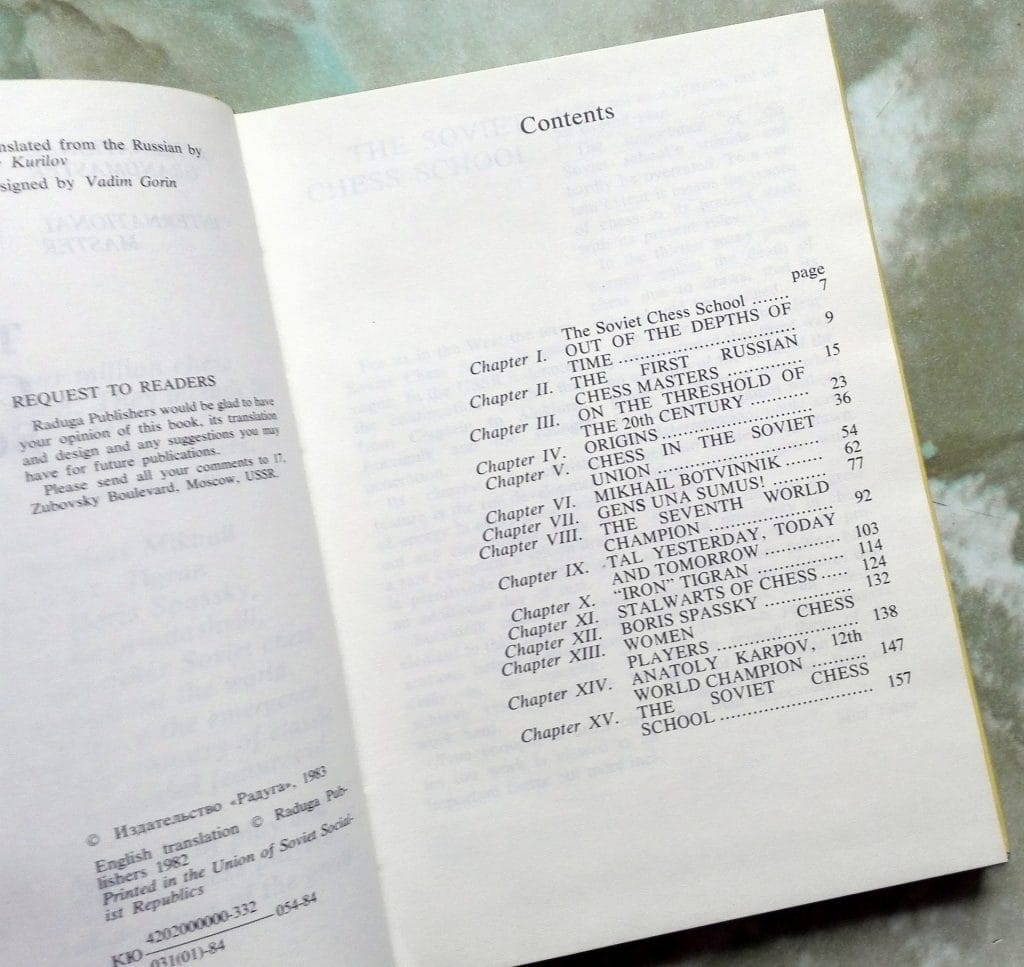 nslated from the Russian by
Kurilov
signed by Vadim Gorin
INTERNATIONAL
MASTER
REQUEST TO READERS
Raduga Publishers would be glad to have
your opinion of this book, its translation
and design and any suggestions you may
have for future publications.
Please send all your comments to 17,
Zubovsky Boulevard, Moscow, USSR.
© Издательство «Радуга», 1983
English translation © Raduga Pub-
lishers 1982
Printed in the Union of Soviet Social-
ist Republics
КЮ 4202000000-332 054-84
031(01)-84
THE SOVIET
CHESS SCHOOL
Contents
page
The Soviet Chess School ....... 7
Chapter I. OUT OF THE DEPTHS OF
TIME .............................. 9
Chapter II. THE FIRST RUSSIAN
CHESS MASTERS ............ 15
Chapter III. ON THE THRESHOLD OF
THE 20th CENTURY .......... 23
Chapter IV. ORIGINS ......................... 36
Chapter V. CHESS IN THE SOVIET
UNION ........................... 54
Chapter VI. MIKHAIL BOTVINNIK ...... 62
Chapter VII. GENS UNA SUMUS! ......... 77
Chapter VIII. THE SEVENTH WORLD
CHAMPION ..................... 92
Chapter IX. TAL YESTERDAY, TODAY
AND TOMORROW ............. 103
Chapter X. "IRON" TIGRAN .............. 114
Chapter XI. STALWARTS OF CHESS ..... 124
Chapter XII. BORIS SPASSKY .............. 132
Chapter XIII. WOMEN CHESS
PLAYERS ....................... 138
Chapter XIV. ANATOLY KARPOV, 12th
WORLD CHAMPION .......... 147
Chapter XV. THE SOVIET CHESS
SCHOOL ........................... 157